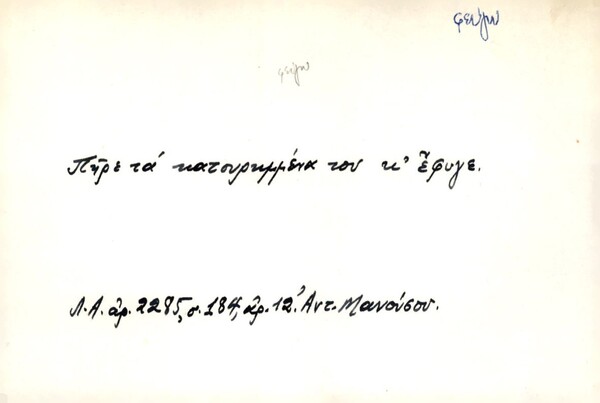 φεύγω
φεύγω
Πῆρε τά κατουρημμένα του κ' ἔφυγε.
Λ.Α. ἀρ. 2285, σ. 184, ἀρ. 12. Ἀντ. Μανούσου.